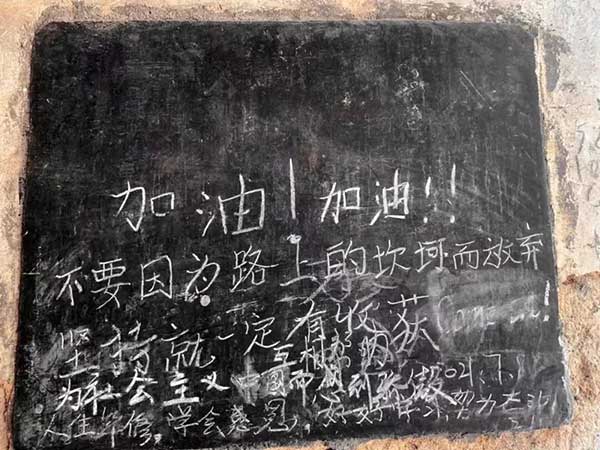 加油!加油!!
不要因为路上的坎坷而放弃
坚持就一定有收获 Come on!
互相帮助
为社会主义中国而 2021.7.1
人生年 学会感恩, 好好学习 努力